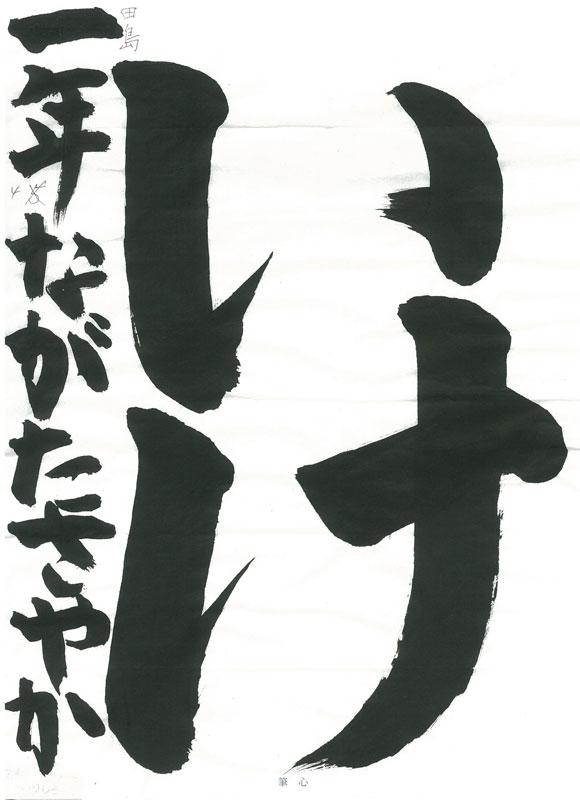 いけ
一年ながたさやか
田島
筆心